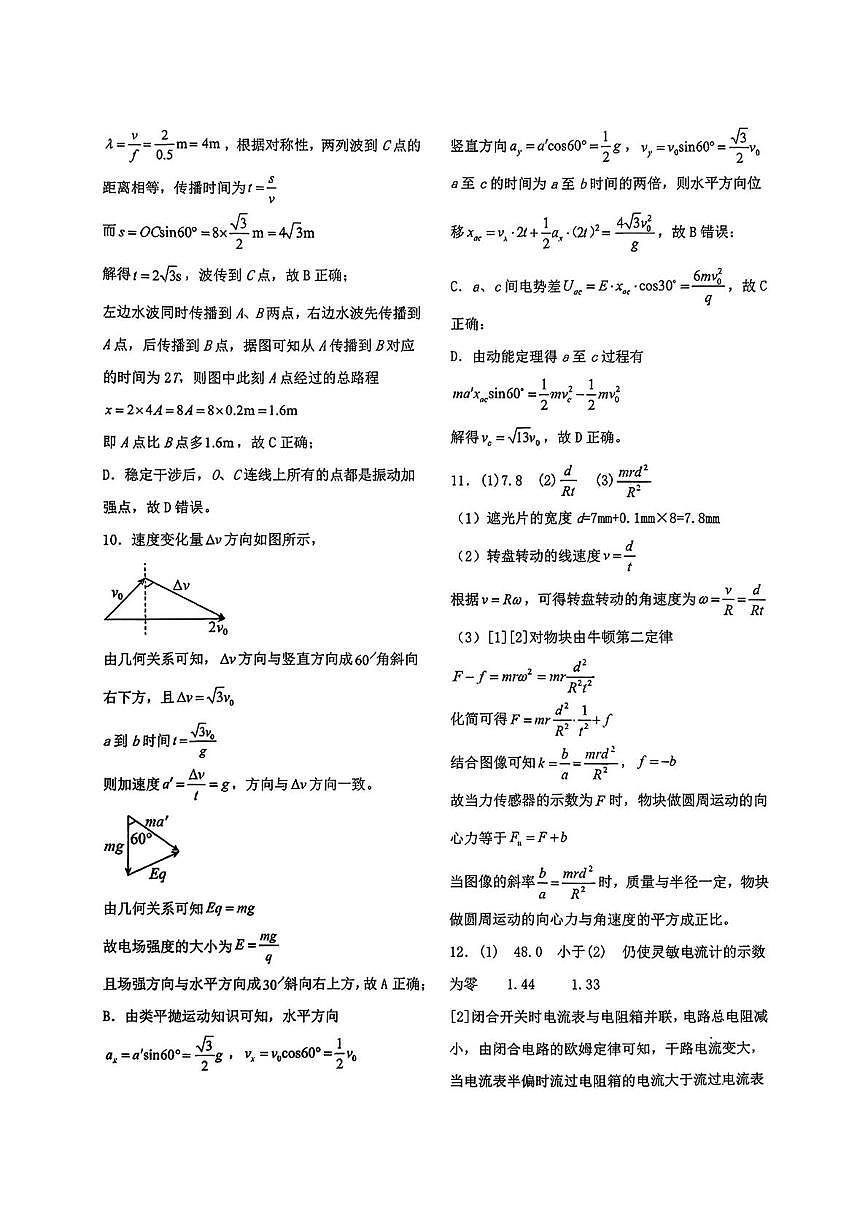 λ=v/f=2/0.5 m=4m，根据对称性，两列波到 C 点的
距离相等，传播时间为 t=s/v
而 s=OCsin60°=8×√3/2 m=4√3m
解得 t=2√3s，波传到 C 点，故 B 正确；
左边水波同时传播到 A、B 两点，右边水波先传播到
A 点，后传播到 B 点，据图可知从 A 传播到 B 对应
的时间为 2T，则图中此刻 A 点经过的总路程
x=2×4A=8A=8×0.2m=1.6m
即 A 点比 B 点多1.6m，故 C 正确；
D．稳定干涉后，O、C 连线上所有的点都是振动加
强点，故 D 错误。
10．速度变化量 Δv 方向如图所示，
v₀ Δv
2v₀
由几何关系可知，Δv 方向与竖直方向成 60°角斜向
右下方，且 Δv=√3v₀
a 到 b 时间 t=√3v₀/g
则加速度 a′=Δv/t=g，方向与 Δv 方向一致。
ma′
mg 60°
Eq
由几何关系可知 Eq=mg
故电场强度的大小为 E=mg/q
且场强方向与水平方向成30°斜向右上方，故 A 正确；
B．由类平抛运动知识可知，水平方向
aₓ=a′sin60°=√3/2 g，vₓ=v₀cos60°=1/2 v₀
竖直方向 a_y=a′cos60°=1/2 g，v_y=v₀sin60°=√3/2 v₀
a 至 c 的时间为 a 至 b 时间的两倍，则水平方向位
移 x_ac=vₓ·2t+1/2 aₓ·(2t)²=4√3v₀²/g，故 B 错误；
C．a、c 间电势差 U_ac=E·x_ac·cos30°=6mv₀²/q，故 C
正确；
D．由动能定理得 a 至 c 过程有
ma′x_ac sin60°=1/2 mv_c²-1/2 mv₀²
解得 v_c=√13v₀，故 D 正确。
11．(1)7.8 (2) d/Rt (3) mrd²/R²
（1）遮光片的宽度 d=7mm+0.1mm×8=7.8mm
（2）转盘转动的线速度 v=d/t
根据 v=Rω，可得转盘转动的角速度为 ω=v/R=d/Rt
（3）[1][2]对物块由牛顿第二定律
F-f=mrω²=mr d²/R²t²
化简可得 F=mr d²/R²·1/t²+f
结合图像可知 k=b/a=mrd²/R²，f=-b
故当力传感器的示数为 F 时，物块做圆周运动的向
心力等于 Fₙ=F+b
当图像的斜率 b/a=mrd²/R² 时，质量与半径一定，物块
做圆周运动的向心力与角速度的平方成正比。
12．(1) 48.0 小于(2) 仍使灵敏电流计的示数
为零 1.44 1.33
[2]闭合开关时电流表与电阻箱并联，电路总电阻减
小，由闭合电路的欧姆定律可知，干路电流变大，
当电流表半偏时流过电阻箱的电流大于流过电流表